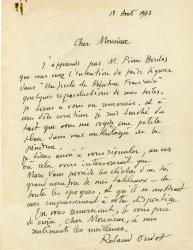 18 Août 1943
Cher Monsieur
J'apprends par M. Pierre Bordas
que vous avez l'intention de faire figurer
dans "Un Siècle de Peinture Française"
quelques reproductions de mes toiles.
Je tiens à vous en remercier, et à
vous dire combien je suis touché du
fait que vous me voyez une petite
place dans une anthologie de la
peinture.
Je tiens aussi à vous signaler, au cas
où cela vous intéresserait que
Marc Vaux possède les clichés d'un très
grand nombre de mes tableaux – de
toutes les époques, et qu'il se mettrait
avec empressement à votre disposition
En vous remerciant, je vous prie
de croire, Cher Monsieur, à mes
sentiments les meilleurs.
Roland Oudot